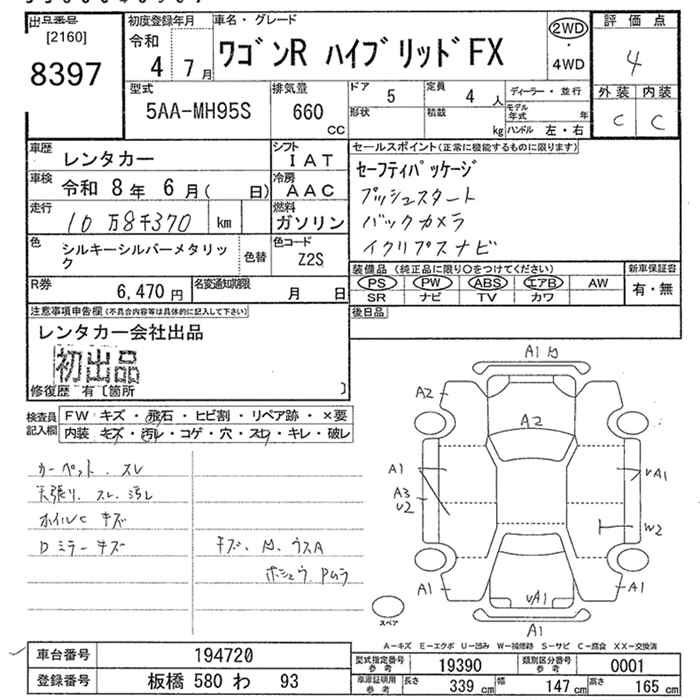 出品番号
[2160]
8397
初度登録年月
令和
4 7月
車名・グレード
ワゴンR ハイブリッドFX
2WD
・
4WD
評価点
4
外装 内装
C C
型式
5AA-MH95S
排気量
660
CC
ドア 5
定員 4 人
形状
積載 kg
ディーラー・並行
モデル年式 年
ハンドル 左・右
車歴 レンタカー
シフト
IAT
車検 令和 8年 6月( 日)
冷房
AAC
走行 10万8千370 km
燃料
ガソリン
色 シルキーシルバーメタリック
色替
色コード
Z2S
R券 6,470円
名変通知期限 月 日
セールスポイント(正常に機能するものに限ります)
セーフティパッケージ
プッシュスタート
バックカメラ
イクリプスナビ
装備品 (純正品に限り○をつけてください)
PS PW ABS エアB AW
SR ナビ TV カワ
新車保証書
有・無
後日品
注意事項申告欄(不具合内容等は具体的に記入して下さい)
レンタカー会社出品
初出品
修復歴 有〔箇所 〕
検査員記入欄
FW キズ・飛石・ヒビ割・リペア跡・×要
内装 キズ・汚レ・コゲ・穴・スレ・キレ・破レ
カーペット スレ
天張り、スレ、汚レ
ホイルC キズ
Dミラーキズ
キズ、凹、ウスA
ホシュウ、Pムラ
A1
A2
A2
A1
A3
U2
UA1
W2
A1
UA1
A1
A1
スペア
A-キズ E-エクボ U-凹み W-補修跡 S-サビ C-腐食 XX-交換済
車台番号 194720
登録番号 板橋 580 わ 93
型式指定番号 参考 19390
類別区分番号 参考 0001
車庫証明用 参考 長さ 339 cm 幅 147 cm 高さ 165 cm